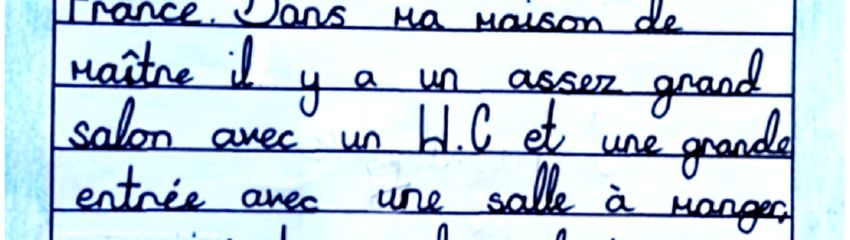 France. Dans ma maison de
maître il y a un assez grand
salon avec un W.C et une grande
entrée avec une salle à manger,